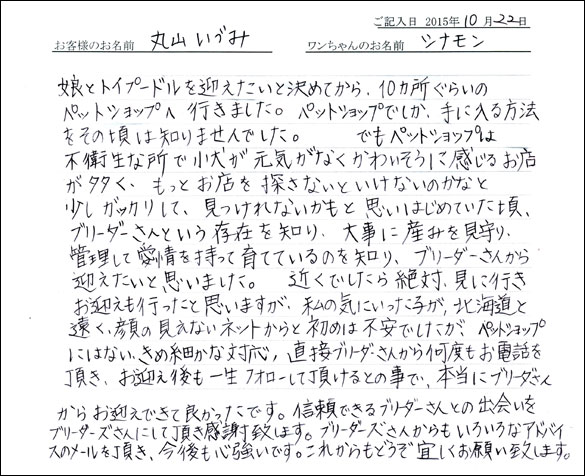 ご記入日 2015年10月22日
お客様のお名前 丸山いづみ ワンちゃんのお名前 シナモン
娘とトイプードルを迎えたいと決めてから、10カ所ぐらいの
ペットショップへ行きました。ペットショップでしか、手に入る方法
をその頃は知りませんでした。 でもペットショップは
不衛生な所で小犬が元気がなくかわいそうに感じるお店
が多く、もっとお店を探さないといけないのかなと
少しガッカリして、見つけれないかもと思いはじめていた頃、
ブリーダーさんという存在を知り、大事に産みを見守り、
管理して愛情を持って育てているのを知り、ブリーダーさんから
迎えたいと思いました。 近くでしたら絶対、見に行き
お迎えも行ったと思いますが、私の気にいった子が、北海道と
遠く、顔の見えないネットからと初めは不安でしたが ペットショップ
にはない、きめ細かな対応、直接ブリーダーさんから何度もお電話を
頂き、お迎え後も一生フォローして頂けるとの事で、本当にブリーダーさん
からお迎えできて良かったです。信頼できるブリーダーさんとの出会いを
ブリーダーズさんにして頂き感謝致します。ブリーダーズさんからもいろいろなアドバイ
スのメールを頂き、今後も心強いです。これからもどうぞ宜しくお願い致します。